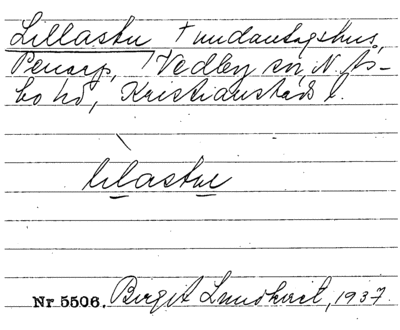 Lillastu + undantagshus,
Penarp, Vedby sn, N. Ås-
bo hd, Kristianstads l.
lilastue
Nr 5506. Birgit Lundkvist, 1937.